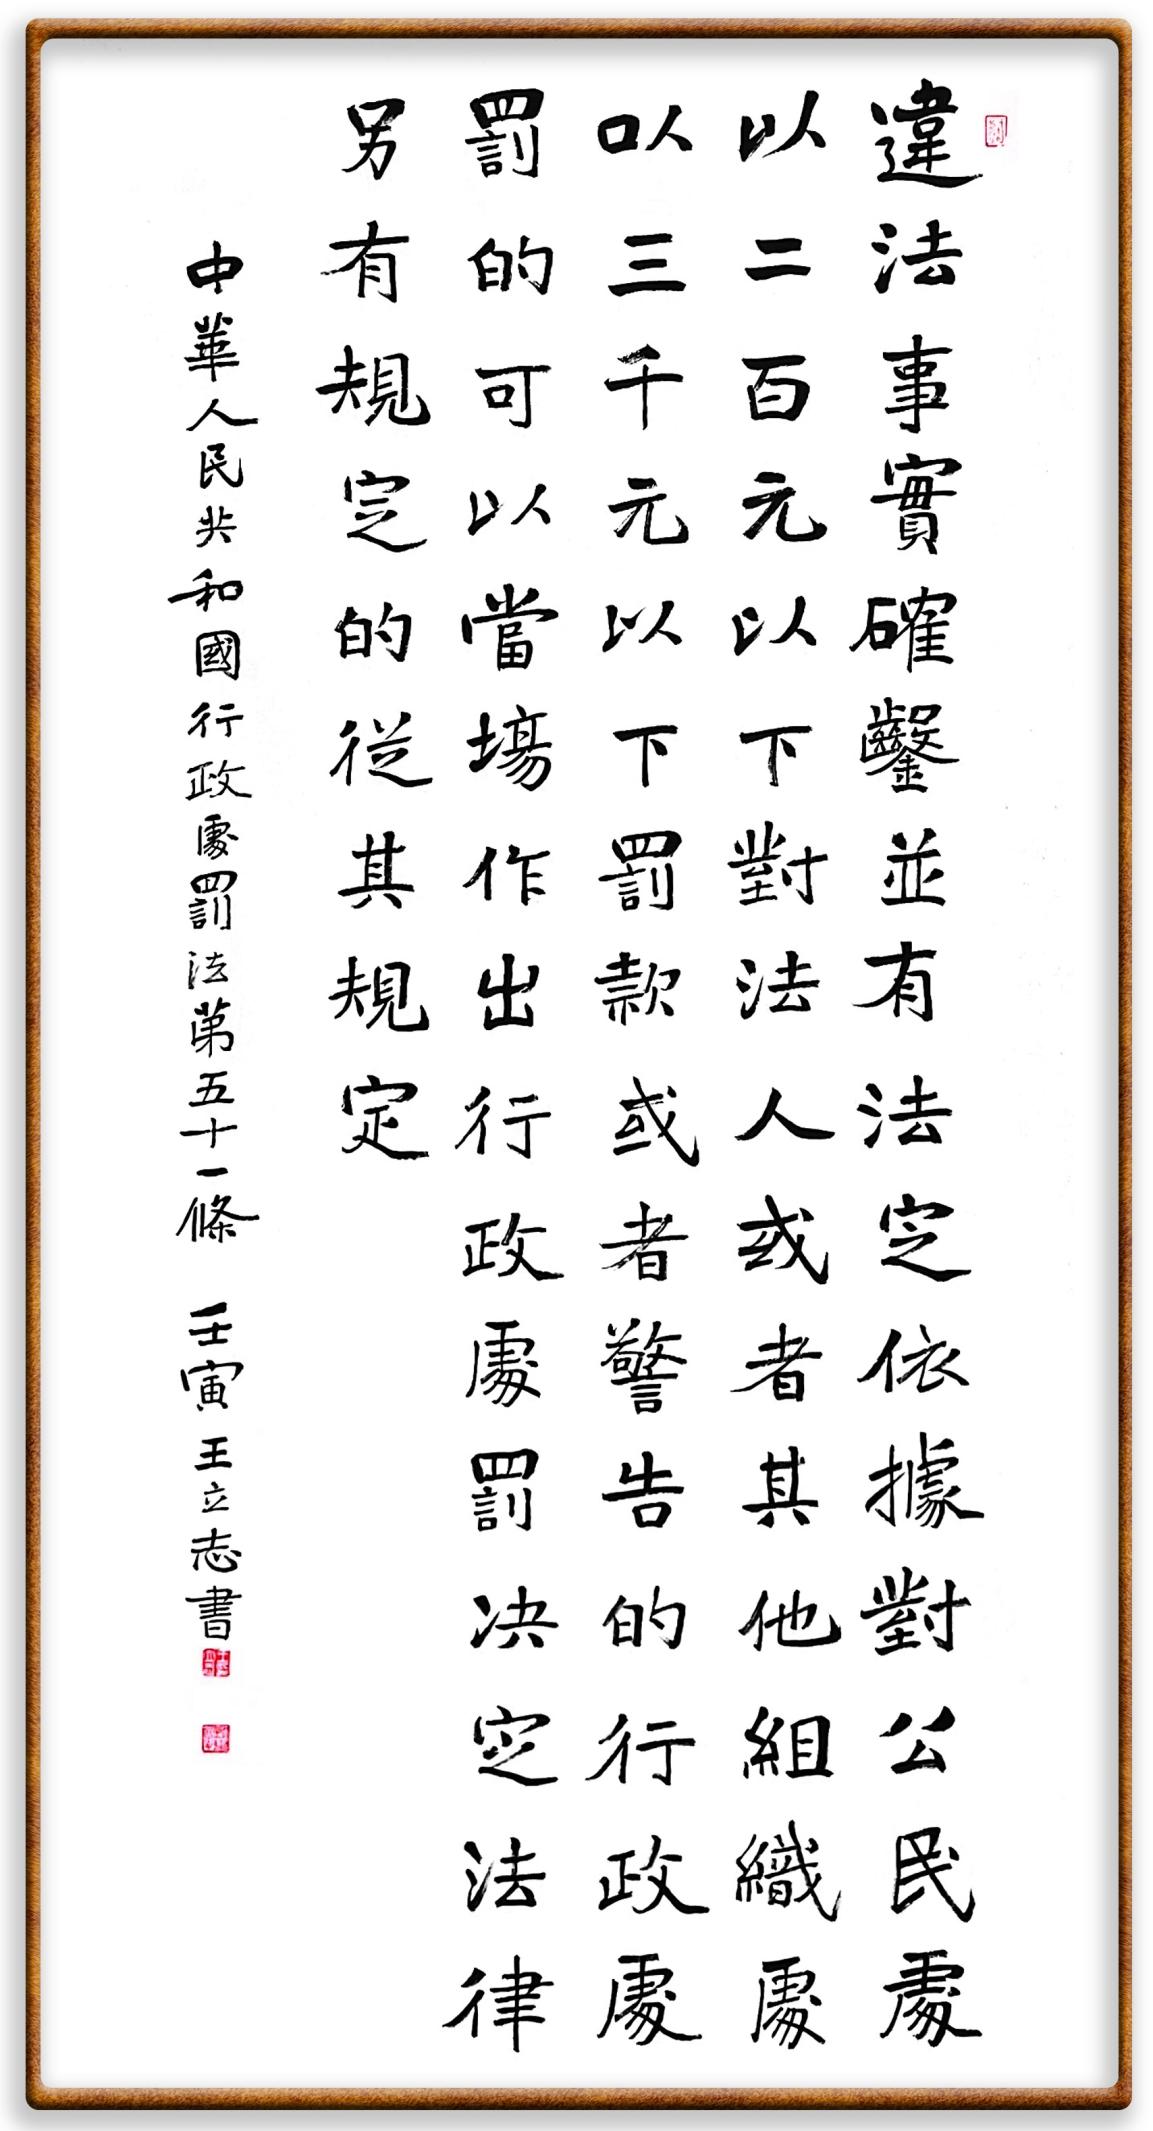 違法事實確鑿並有法定依據對公民處
以二百元以下對法人或者其他組織處
以三千元以下罰款或者警告的行政處
罰的可以當場作出行政處罰決定法律
另有規定的從其規定
中華人民共和國行政處罰法第五十一條 壬寅 王立志書